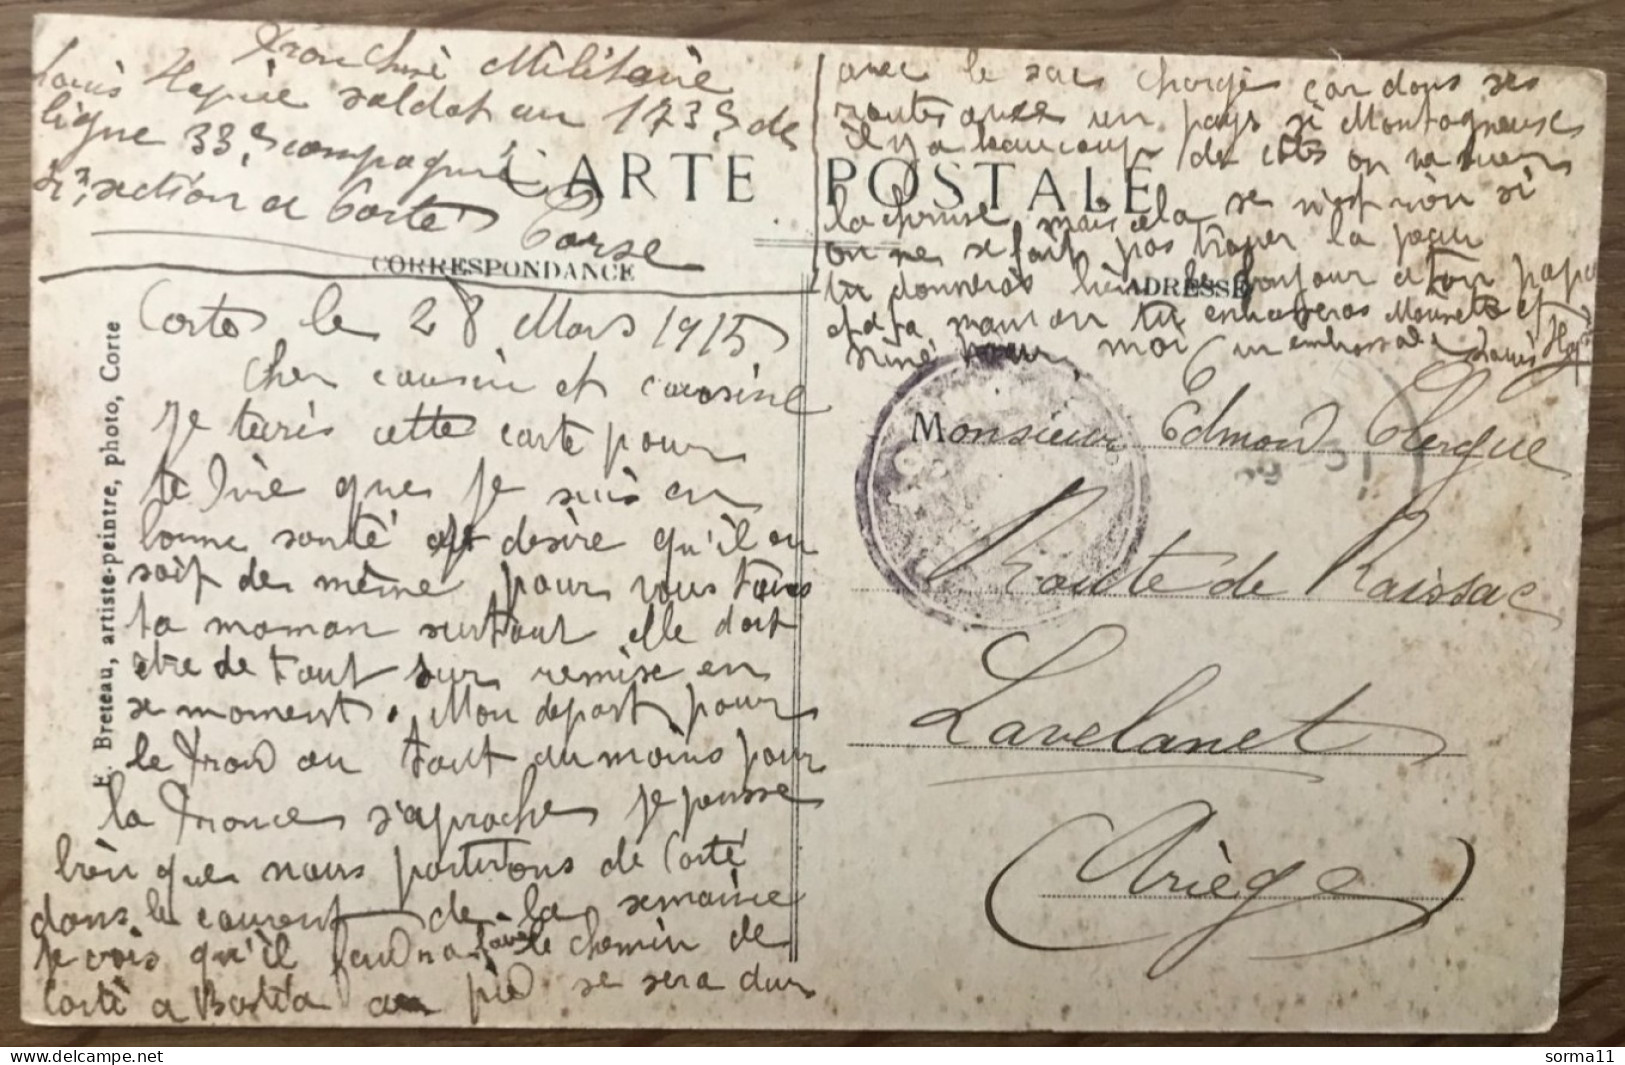 Franchise Militaire
Louis soldat au 173e de
ligne 33e compagnie
section a Corte Corse
CARTE POSTALE
CORRESPONDANCE
ADRESSE
Corte le 28 Mars 1915
Cher cousin et cousine
Je tecris cette carte pour
te dire que je suis en
bonne santé et desire qu'il en
soit de même pour vous tous
ta maman surtout elle doit
etre de tout sur remise en
se moment. Mon depart pour
le front ou tout au moins pour
la France s'aproche je pense
bien que nous partirons de Corte
dans le courent de la semaine
Je crois qu'il faudra faire le chemin de
Corte a Bastia a pied se sera dur
avec le sac chargé car dans ses
routes avec un pays si Montagneuse
il y a beaucoup de côtes on va suer
la chemise mais cela se n'est rien si
on ne se fait pas trouer la peau
tu donneras bien le bonjour a ton papa
et a ta maman tu embrasseras et
pour moi un embrassade Louis
Monsieur Edmond Clergue
Route de Raissac
Lavelanet
(Ariège)
E. Breteau, artiste-peintre, photo, Corte
sorma11